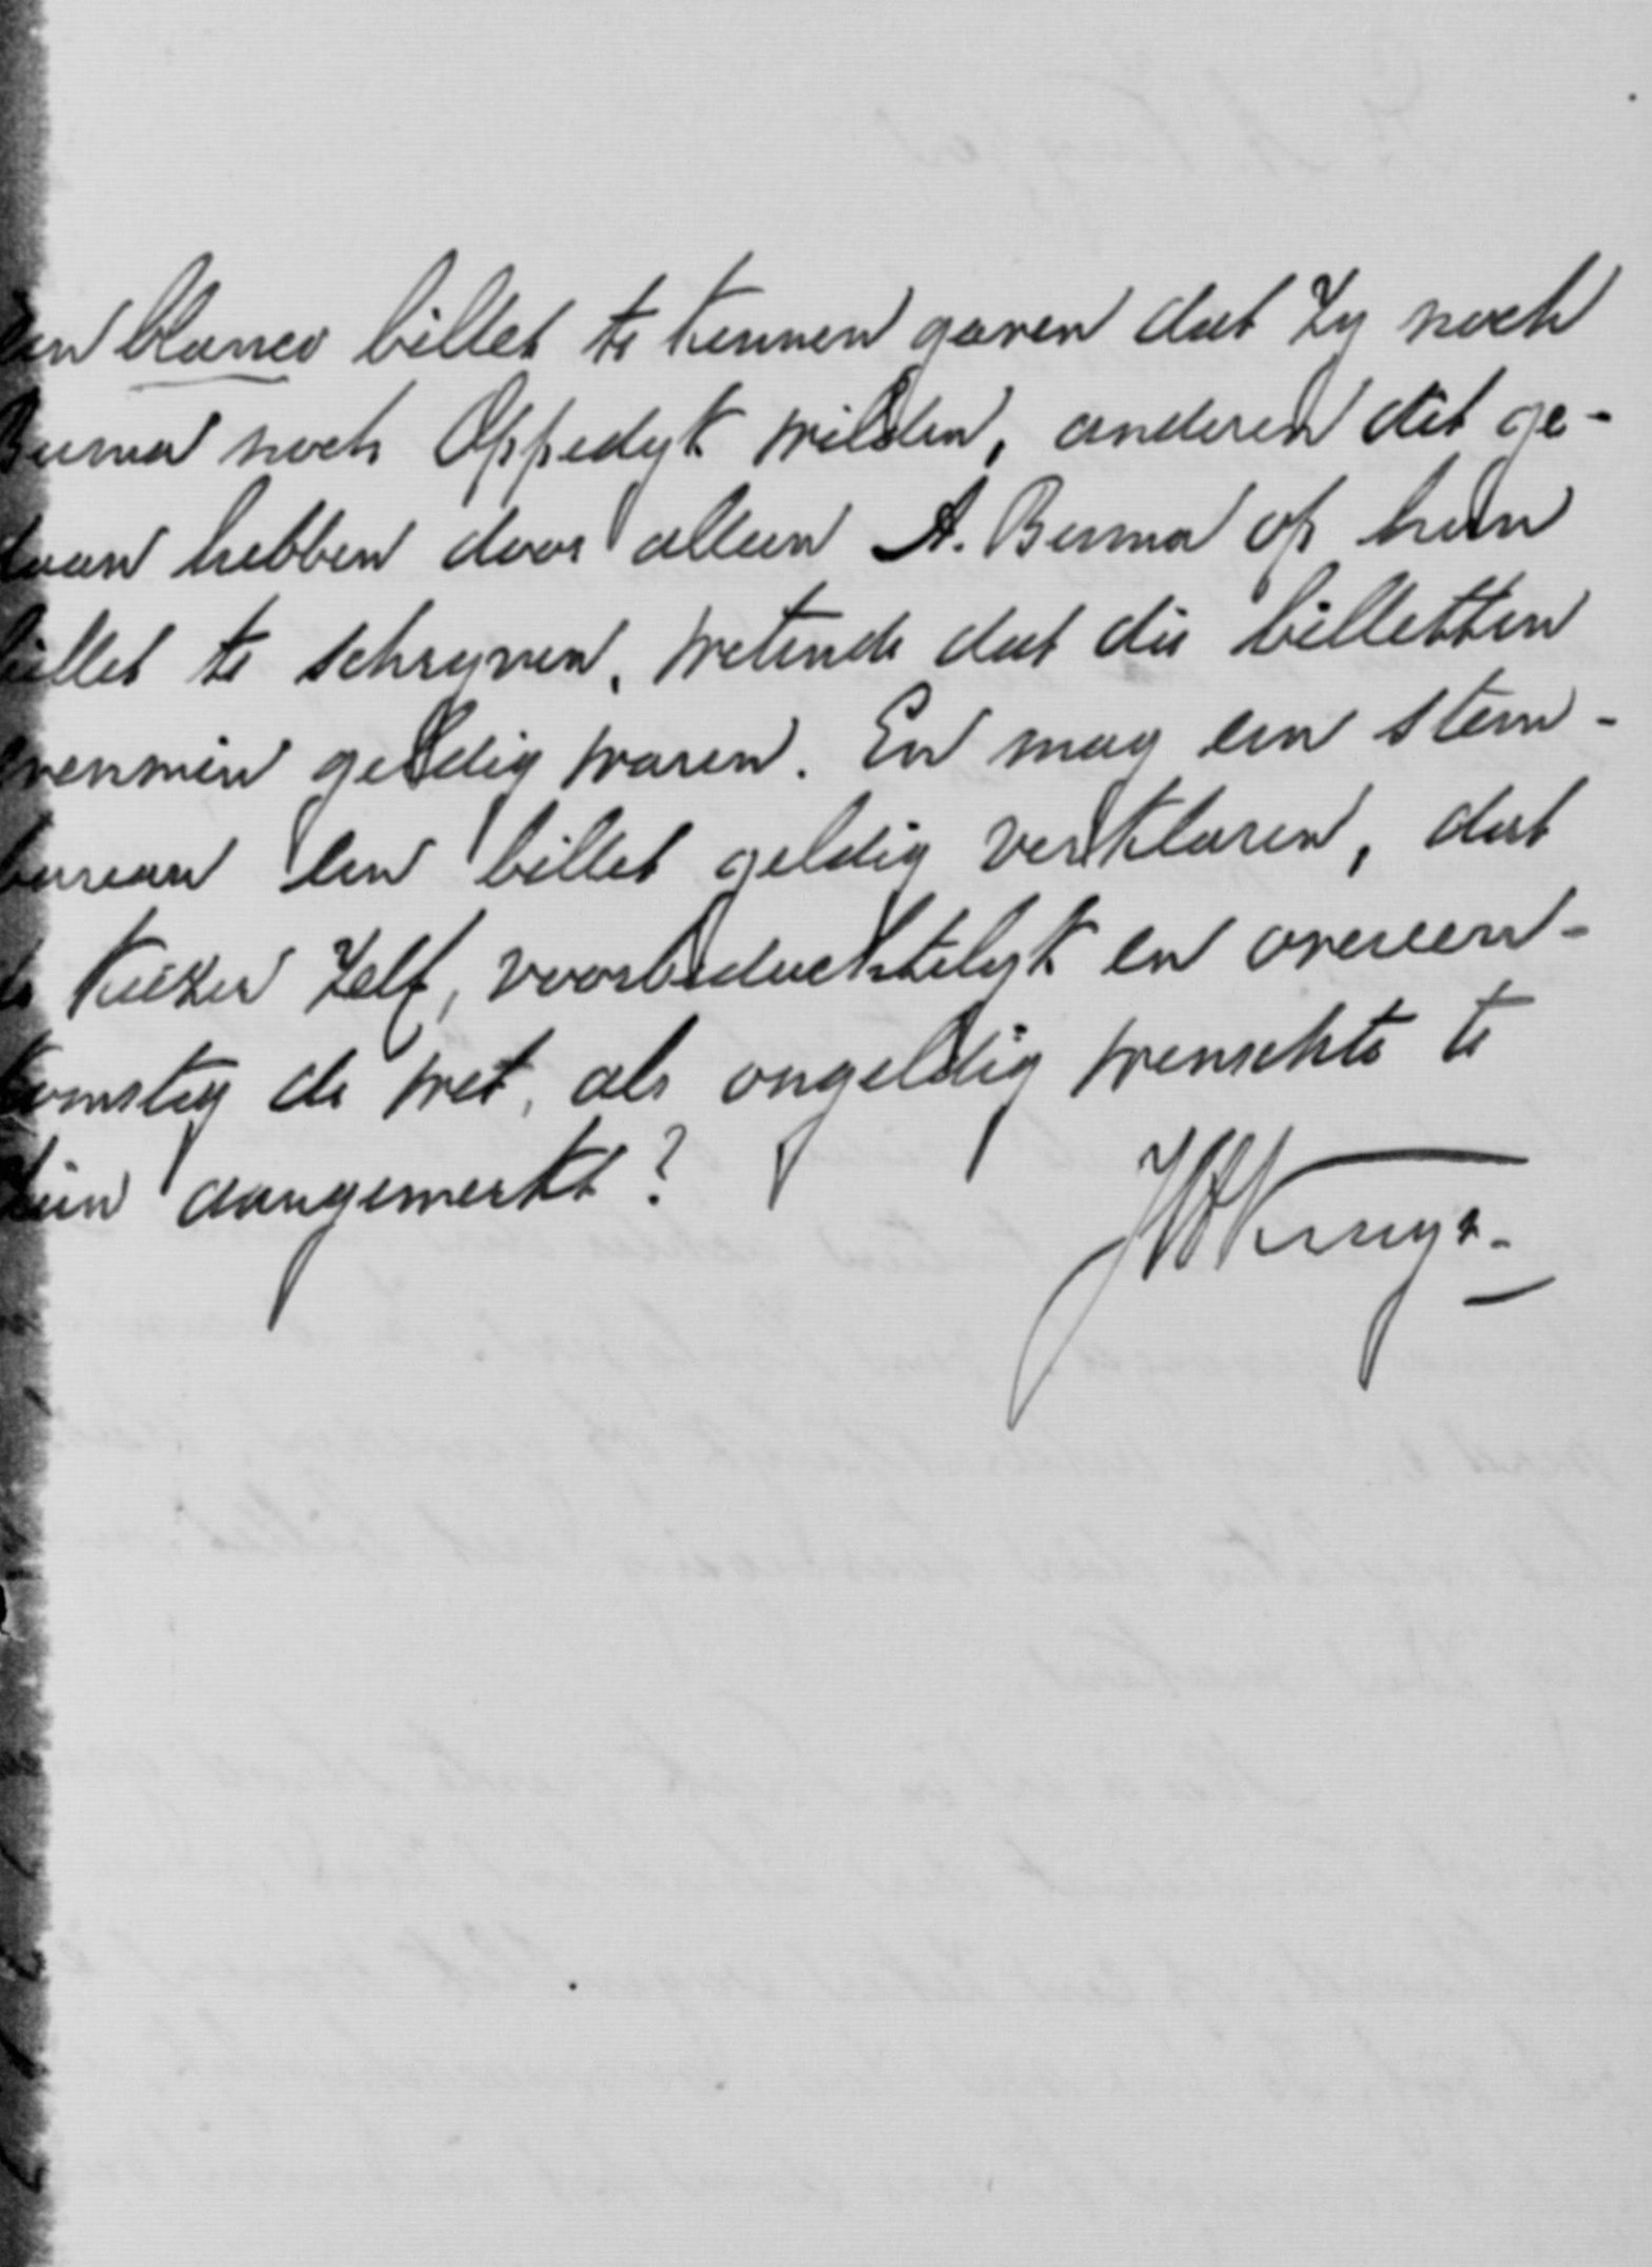 een blanco billet te kennen gaven dat zy noch
Buma noch Oppedyk wilden, anderen dit ge-
daan hebben door alleen A. Buma op hun
billet te schryven, wetende dat die billetten
evenmin geldig waren. En mag een stem-
bureau een billet geldig verklaren, dat
de kiezer zelf, voorbedachtelyk en overeen-
komstig de wet, als ongeldig wenschte te
zien aangemerkt?